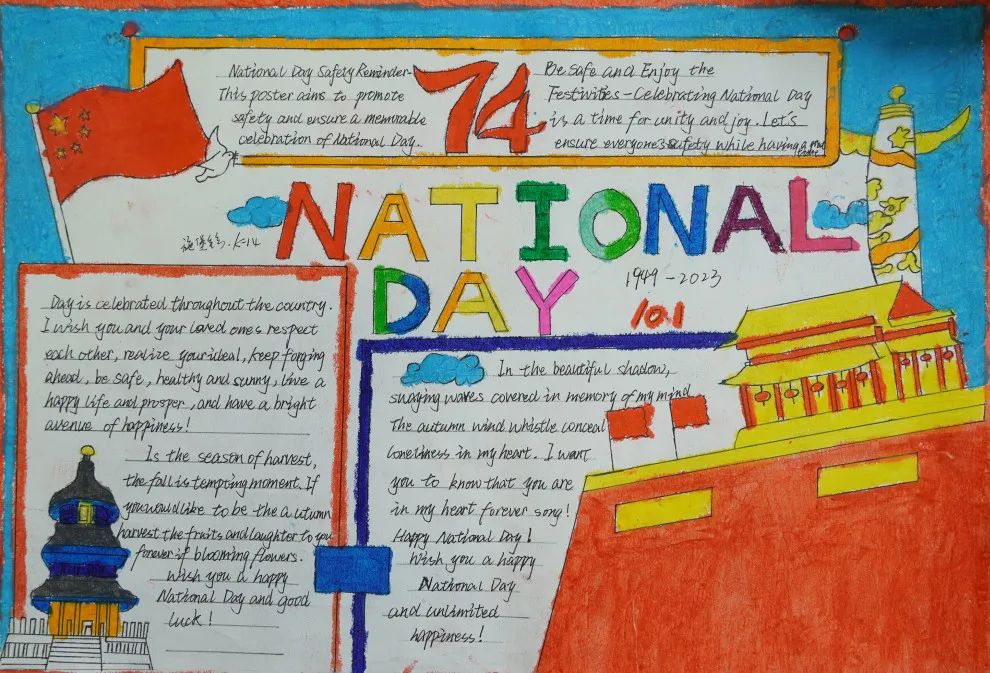 National Day Safety Reminder-
This poster aims to promote
safety and ensure a memorable
celebration of National Day.
74
Be safe and Enjoy the
Festivities - Celebrating National Day
is a time for unity and joy. Let's
ensure everyone's safety while having a
NATIONAL
DAY
1949-2023
10.1
Day is celebrated throughout the country.
I wish you and your loved ones respect
each other, realize your ideal, keep forging
ahead, be safe, healthy and sunny, live a
happy life and prosper, and have a bright
avenue of happiness!
Is the season of harvest,
the fall is tempting moment. If
you would like to be the autumn
harvest the fruits and laughter to you
forever if blooming flowers.
Wish you a happy
National Day and good
luck!
In the beautiful shadow,
waves covered in memory of my mind
The autumn wind whistle conceal
loneliness in my heart. I want
you to know that you are
in my heart forever song!
Happy National Day!
Wish you a happy
National Day
and unlimited
happiness!